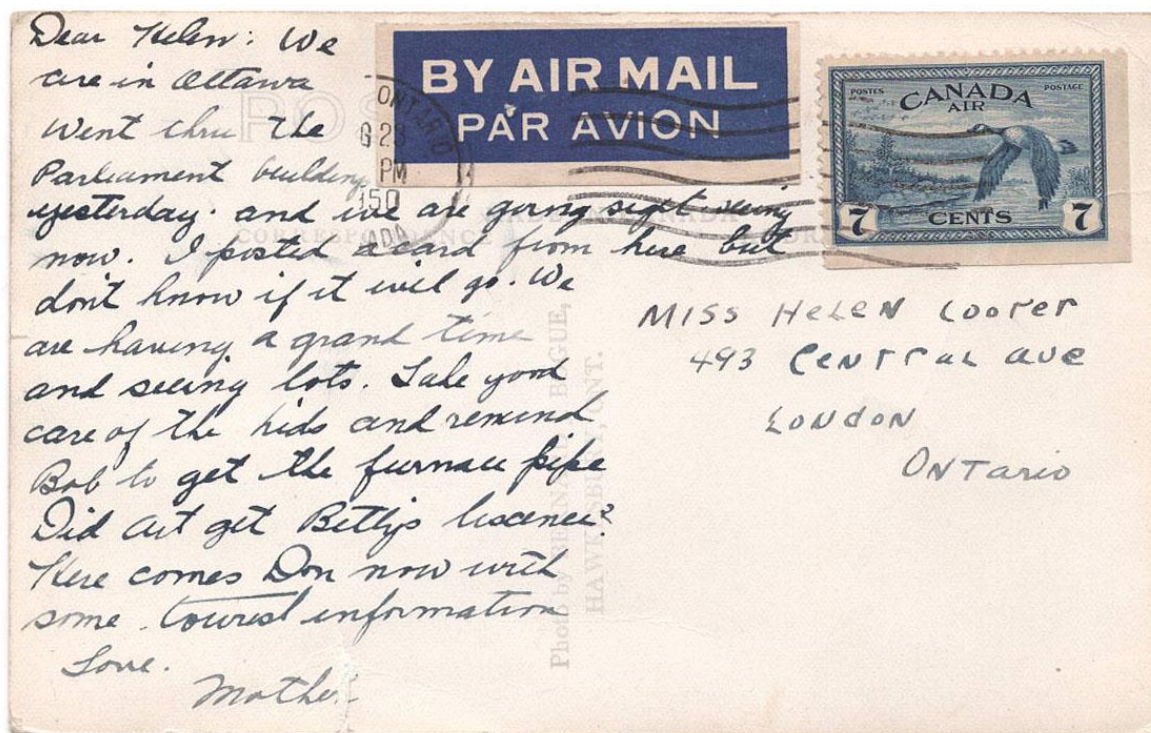 Dear Helen: We
are in Ottawa
Went thru the
Parliament building
yesterday. and we are going sight seeing
now. I posted a card from here but
don't know if it will go. We
are having a grand time
and seeing lots. Take good
care of the kids and remind
Bob to get the furnace pipe
Did Art get Bettys liscence?
Here comes Don now with
some tourist information
Love.
Mother.
BY AIR MAIL
PAR AVION
ONTARIO
G 28
PM
150
ADA
POSTES
POSTAGE
CANADA
AIR
7 CENTS 7
POS
CANADA
CORRESPONDENCE
MISS HELEN COOPER
493 CENTRAL AVE
LONDON
ONTARIO
Photo by BOGUE,
HAWKESBURY, ONT.